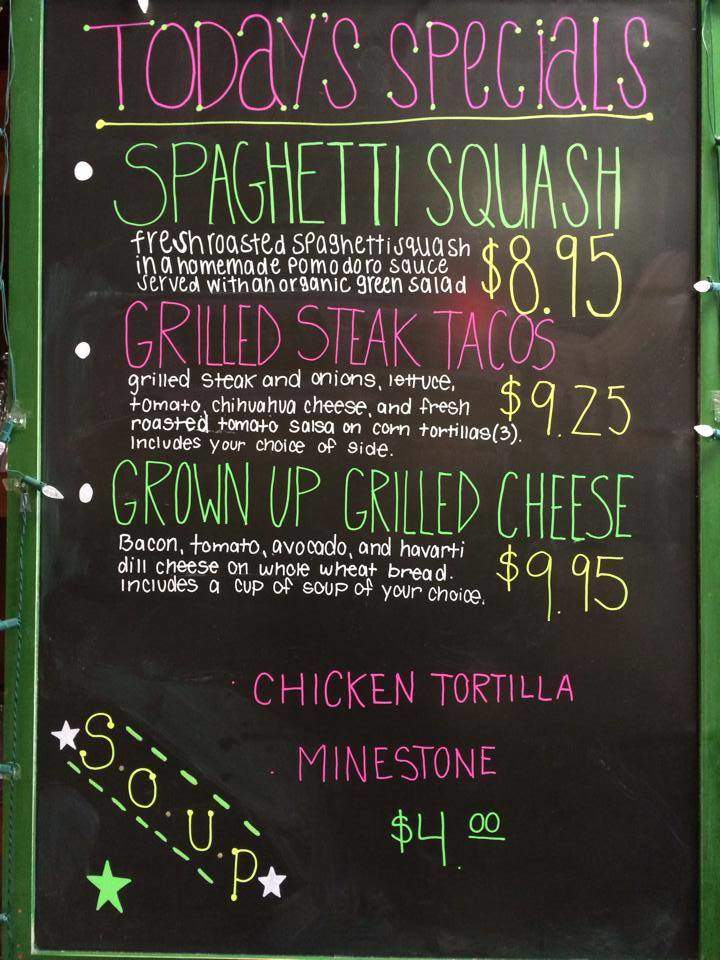 TODAY'S SPECIALS
SPAGHETTI SQUASH
fresh roasted spaghetti squash
in a homemade pomodoro sauce
served with an organic green salad
$8.95
GRILLED STEAK TACOS
grilled steak and onions, lettuce,
tomato, chihuahua cheese, and fresh
roasted tomato salsa on corn tortillas(3).
Includes your choice of side.
$9.25
GROWN UP GRILLED CHEESE
Bacon, tomato, avocado, and havarti
dill cheese on whole wheat bread.
Includes a cup of soup of your choice.
$9.95
CHICKEN TORTILLA
MINESTONE
$4.00
S.O.U.P